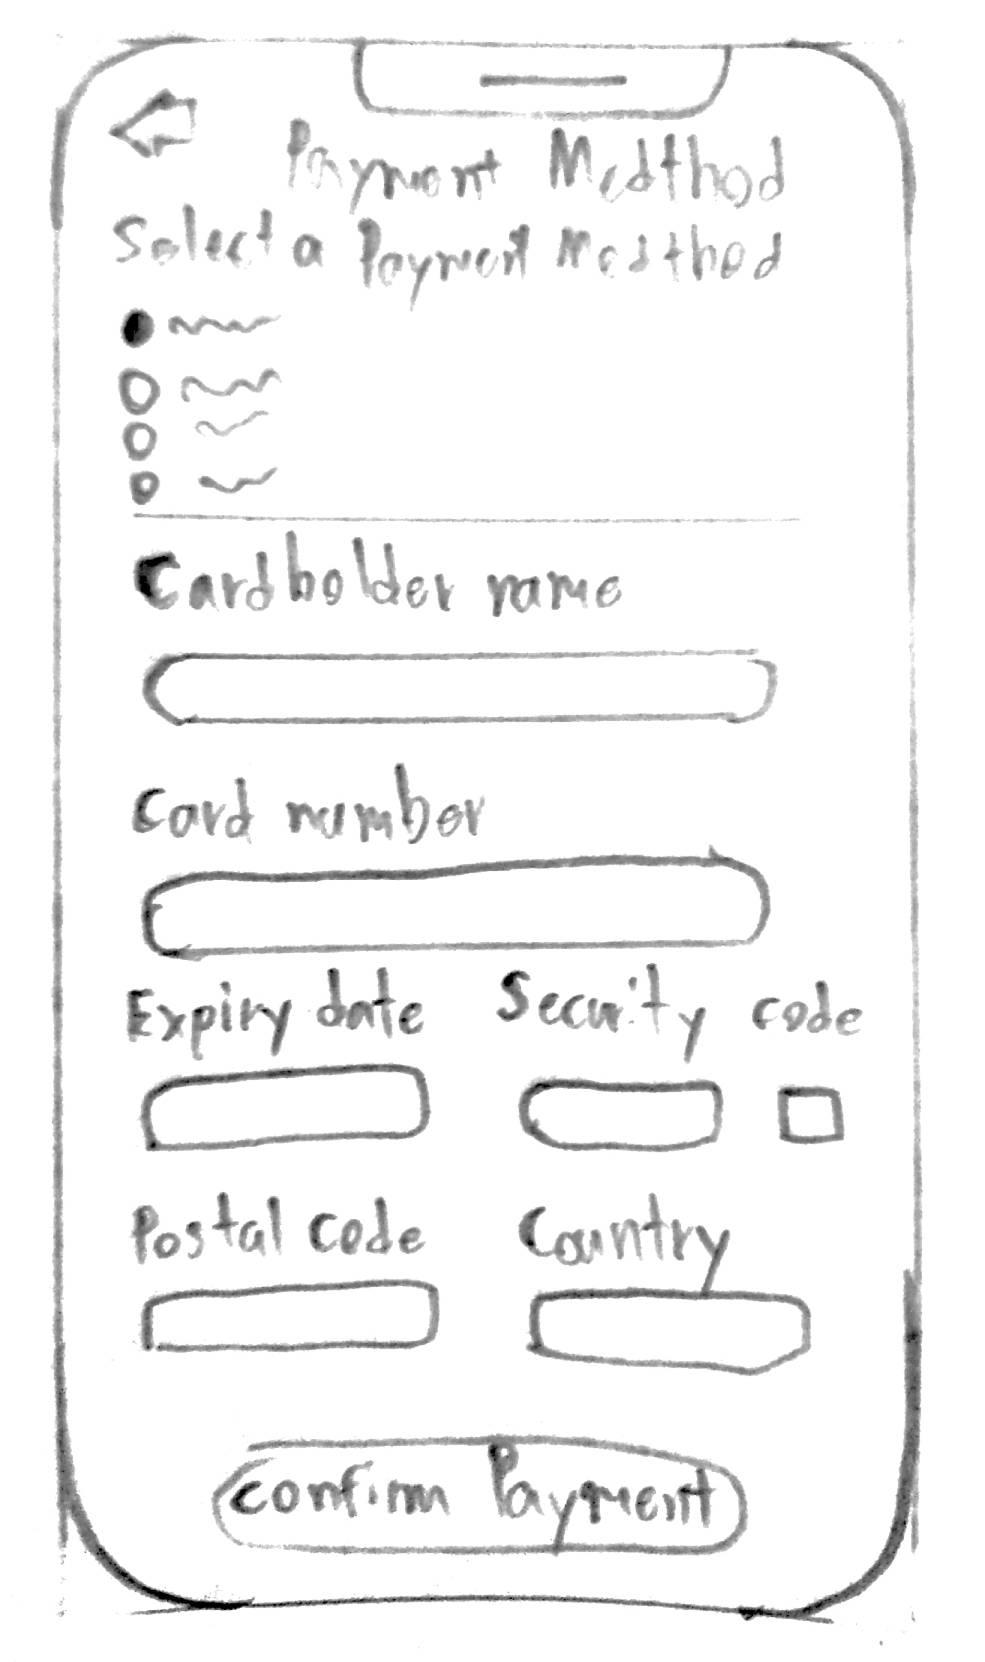 Payment Medthod
Select a Payment Medthod
Cardholder name
Card number
Expiry date Security code
Postal code Country
Confirm Payment